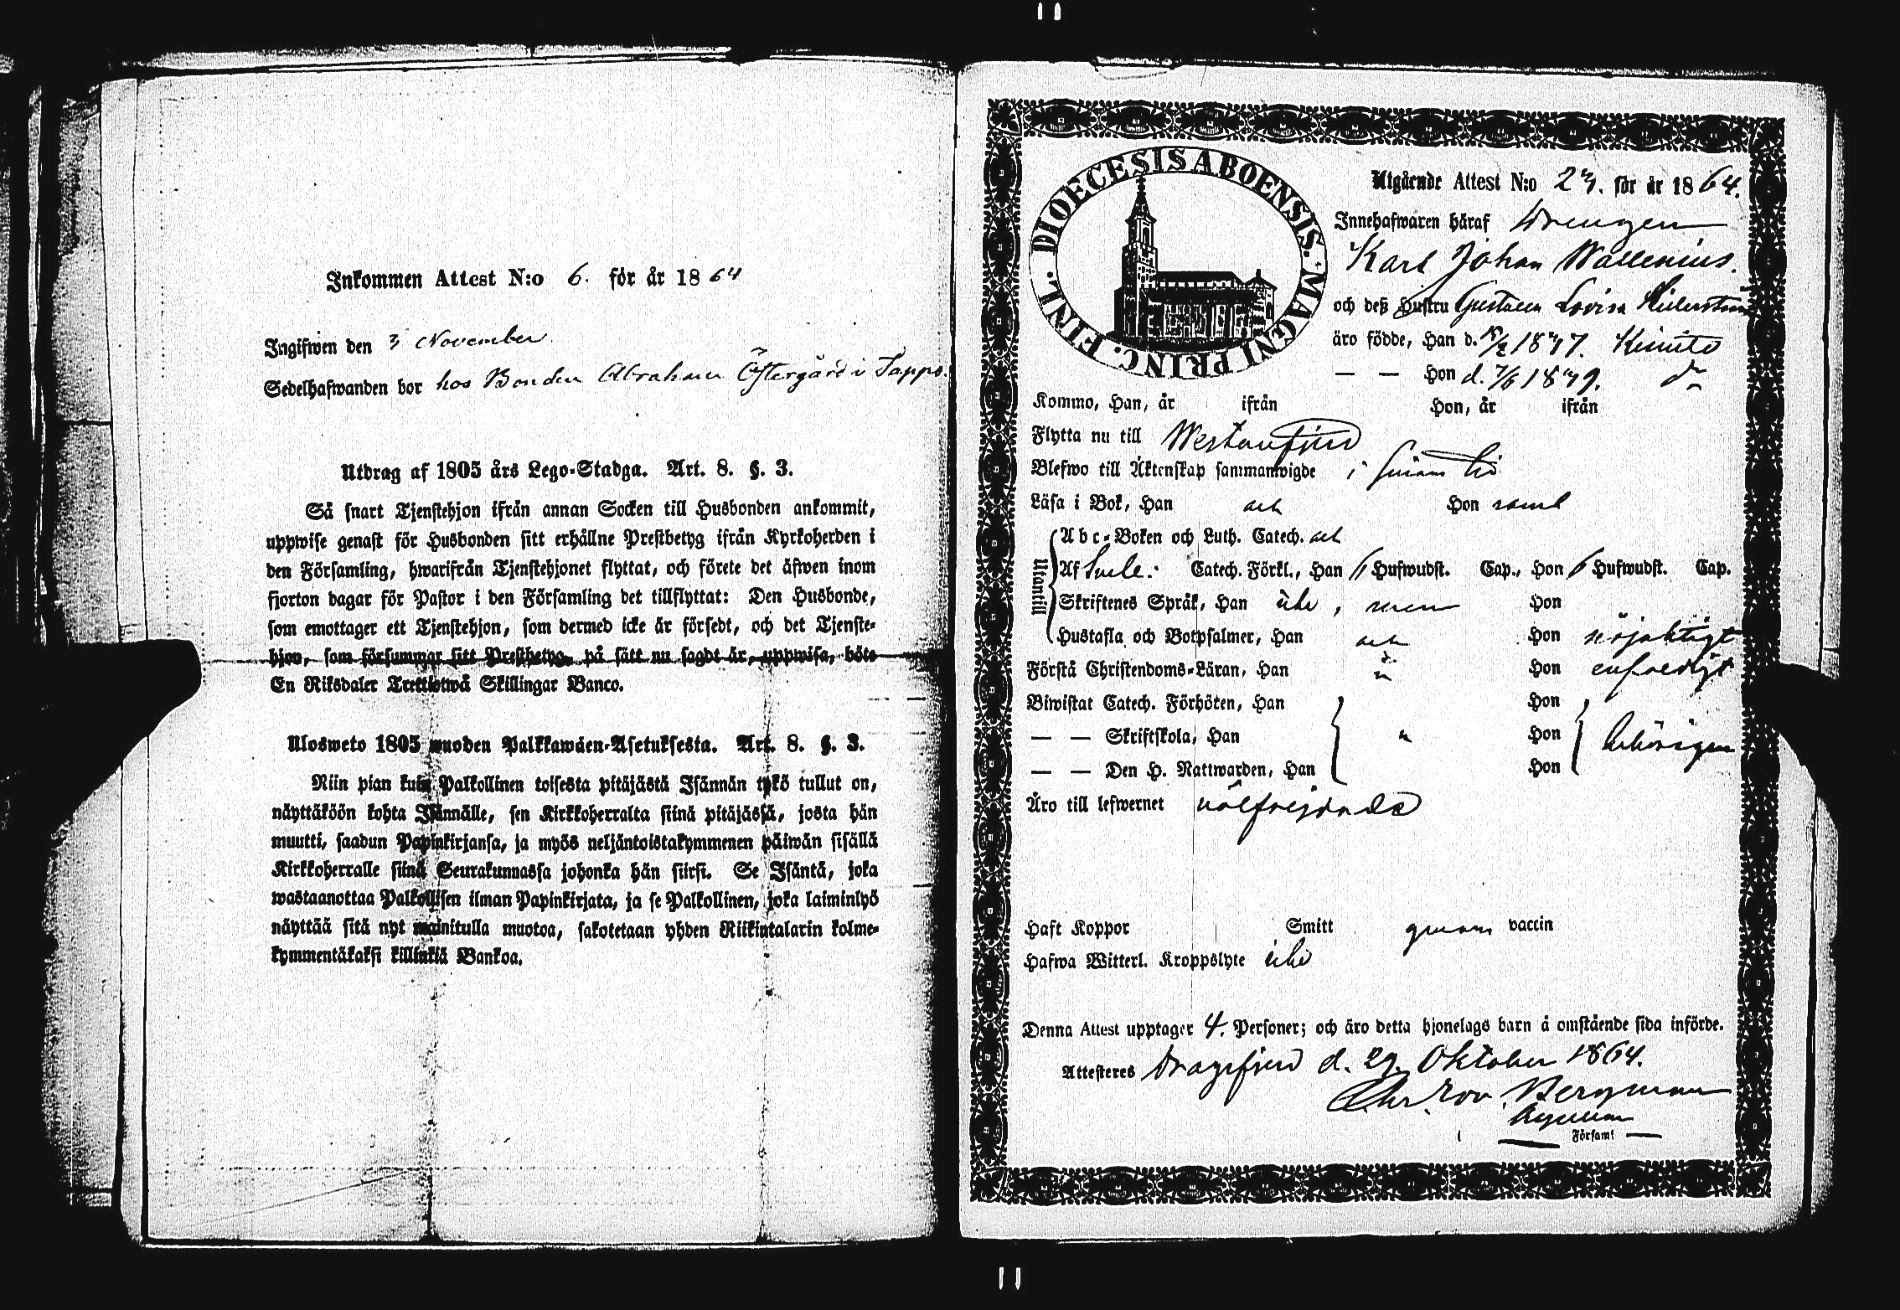 Inkommen Attest N:o 6. för år 1864
Ingifwen den 3 November.
Sedelhafwanden bor hos Bonden Abraham Östergård i Tappo.
Utdrag af 1805 års Lego-Stadga. Art. 8. §. 3.
Så snart Tjenstehjon ifrån annan Socken till Husbonden ankommit,
uppwise genast för Husbonden sitt erhållne Prestbetyg ifrån Kyrkoherden i
den Församling, hwarifrån Tjenstehjonet flyttat, och förete det äfwen inom
fjorton dagar för Pastor i den Församling det tillflyttat: Den Husbonde,
som emottager ett Tjenstehjon, som dermed icke är försedt, och det Tjenste-
hjon, som försummar sitt Prestbetyg, på sätt nu sagdt är, uppwisa, böte
En Riksdaler Trettiotwå Skillingar Banco.
Ulosweto 1805 wuoden Palkkawäen-Asetuksesta. Art. 8. §. 3.
Niin pian kuin Palkollinen toisesta pitäjästä Isännän tykö tullut on,
näyttäköön kohta Isännälle, sen Kirkkoherralta siinä pitäjässä, josta hän
muutti, saadun Papinkirjansa, ja myös neljäntoistakymmenen päiwän sisällä
Kirkkoherralle siinä Seurakunnassa johonka hän siirsi. Se Isäntä, joka
wastaanottaa Palkollisen ilman Papinkirjata, ja se Palkollinen, joka laiminlyö
näyttää sitä nyt mainitulla muotoa, sakotetaan yhden Riikintalarin kolme-
kymmentäkaksi killinkiä Bankoa.
DIOECESIS ABOENSIS. MAGNI PRINC. FINL.
Utgående Attest N:o 23. för år 1864.
Innehafwaren häraf Drengen
Karl Johan Wallenius.
och deß Hustru Gustawa Lovisa
äro födde, Han d. 1837. Kimito
— — Hon d. 7/6 1839. do
Kommo, Han, år ifrån Hon, år ifrån
Flytta nu till Westanfjerd
Blefwo till Äktenskap sammanwigde i
Läsa i Bok, Han och Hon
Abc-Boken och Luth. Catech. och
Utantill
Af Catech. Förkl., Han 6 Hufwudst. Cap., Hon 6 Hufwudst. Cap.
Skriftenes Språk, Han Hon
Hustafla och Botpsalmer, Han och Hon nöjaktigt
Förstå Christendoms-Läran, Han Hon enfaldigt
Biwistat Catech. Förhöten, Han Hon
— — Skriftskola, Han Hon behörigen
— — Den H. Nattwarden, Han Hon
Äro till lefwernet wälfrejdade
Haft Koppor Smitt genom vaccin
Hafwa Witterl. Kroppslyte icke
Denna Attest upptager 4. Personer; och äro detta hjonelags barn å omstående sida införde.
Attesteres Dragsfjerd d. 29. Oktober 1864.
Bergman
Församl